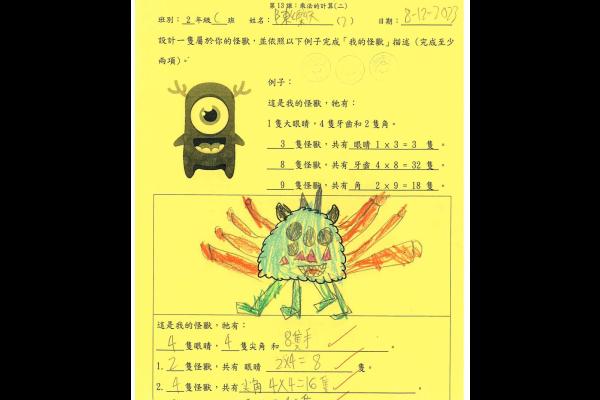 第13課：乘法的計算(二)
班別：2年級C班 姓名：陳 (7) 日期：8-12-2023
設計一隻屬於你的怪獸，並依照以下例子完成「我的怪獸」描述（完成至少
兩項）。
例子：
這是我的怪獸，牠有：
1隻大眼睛，4隻牙齒和2隻角。
3 隻怪獸，共有 眼睛 1 x 3 = 3 隻。
8 隻怪獸，共有 牙齒 4 x 8 = 32 隻。
9 隻怪獸，共有 角 2 x 9 = 18 隻。
這是我的怪獸，牠有：
4 隻眼睛，4 隻尖角 和 8隻手。
1. 2 隻怪獸，共有 眼睛 2X4=8 隻。
2. 4 隻怪獸，共有 尖角 4X4=16隻。